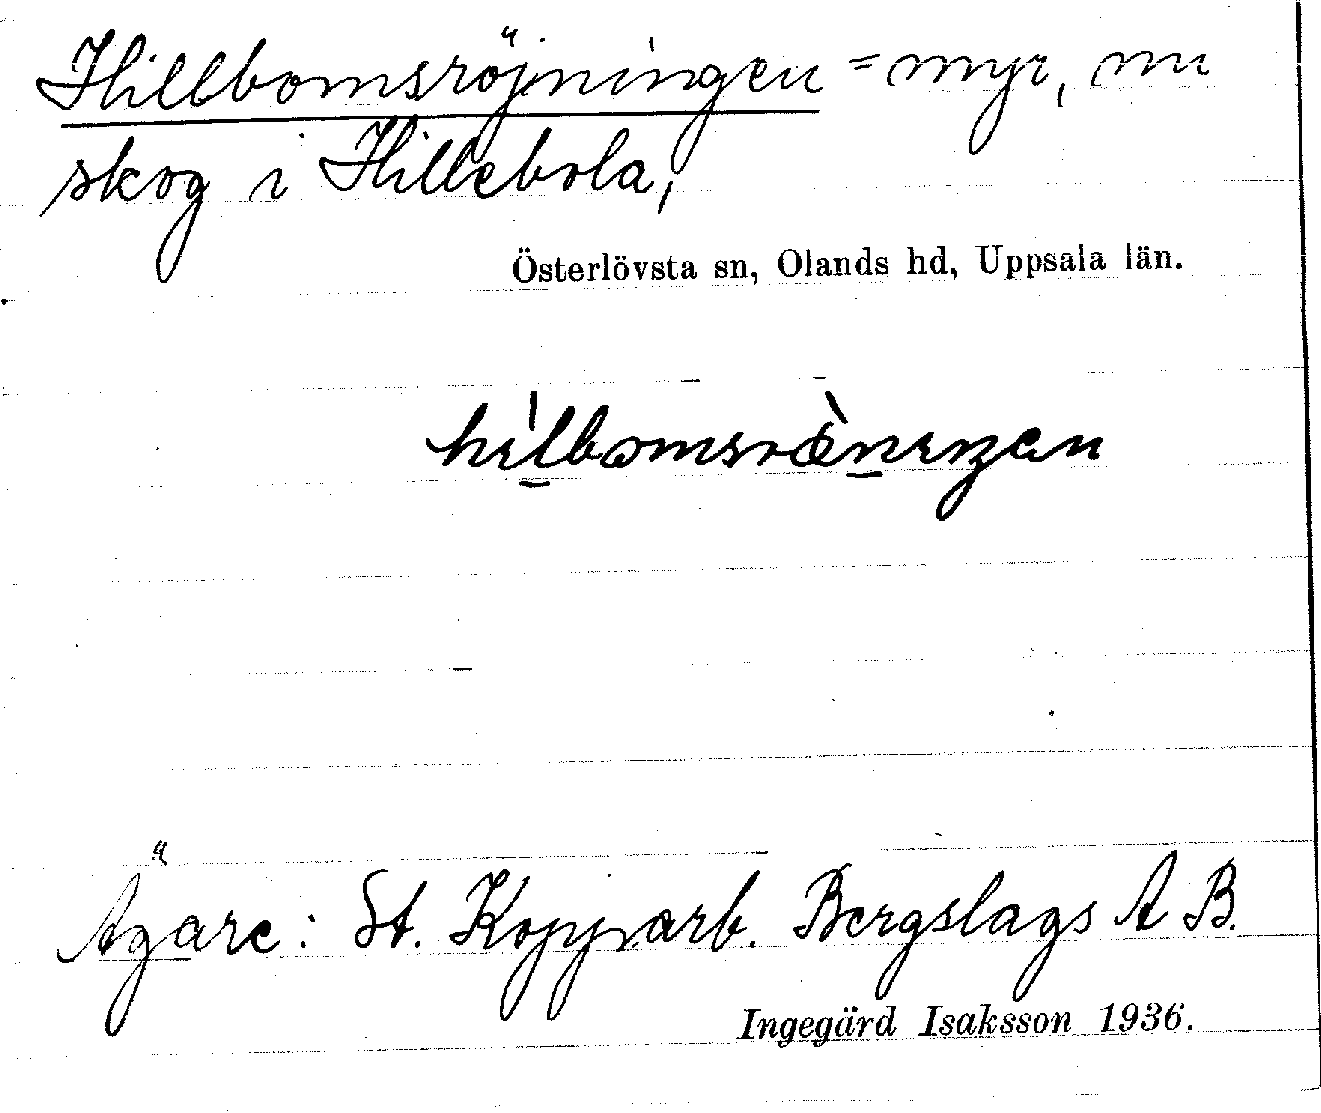 Hillbomsröjningen = myr, nu
skog i Hillebola,
Österlövsta sn, Olands hd, Uppsala län.
Ägare: St. Kopparb. Bergslags A B.
Ingegärd Isaksson 1936.